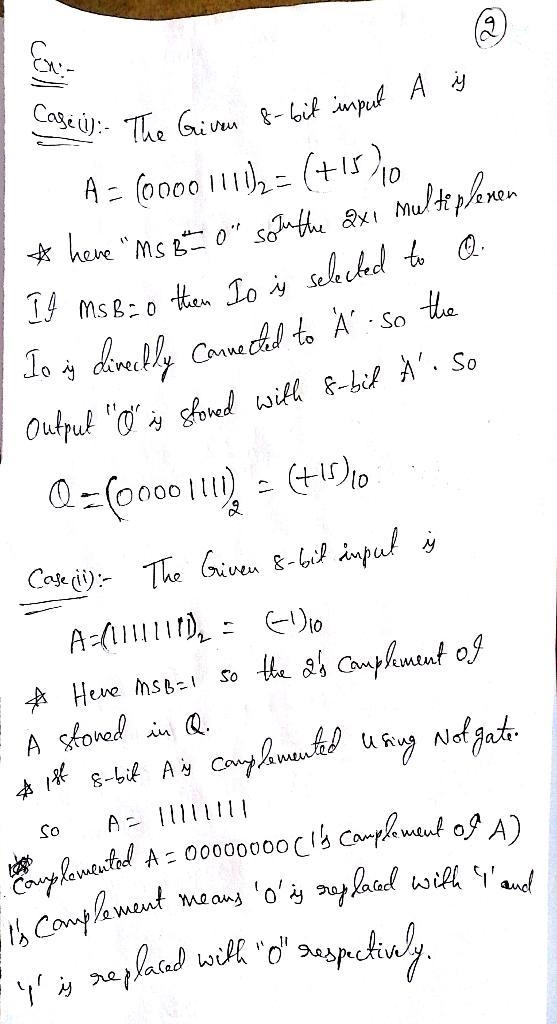 2
Ex:-
Case(i):- The Given 8-bit input A is
A = (0000 1111)2 = (+15)10
* here "MSB = 0" so In the 2x1 multiplexer
If MSB=0 then I0 is selected to Q.
I0 is directly Connected to 'A'. so the
output "Q" is stored with 8-bit 'A'. So
Q = (0000 1111)2 = (+15)10
Case(ii):- The Given 8-bit input is
A=(11111111)2 = (-1)10
* Here MSB=1 so the 2's Complement of
A stored in Q.
* 1st 8-bit A is complemented using Not gate.
so A = 11111111
Complemented A = 00000000 (1's Complement of A)
1's Complement means '0' is replaced with '1' and
'1' is replaced with "0" respectively.